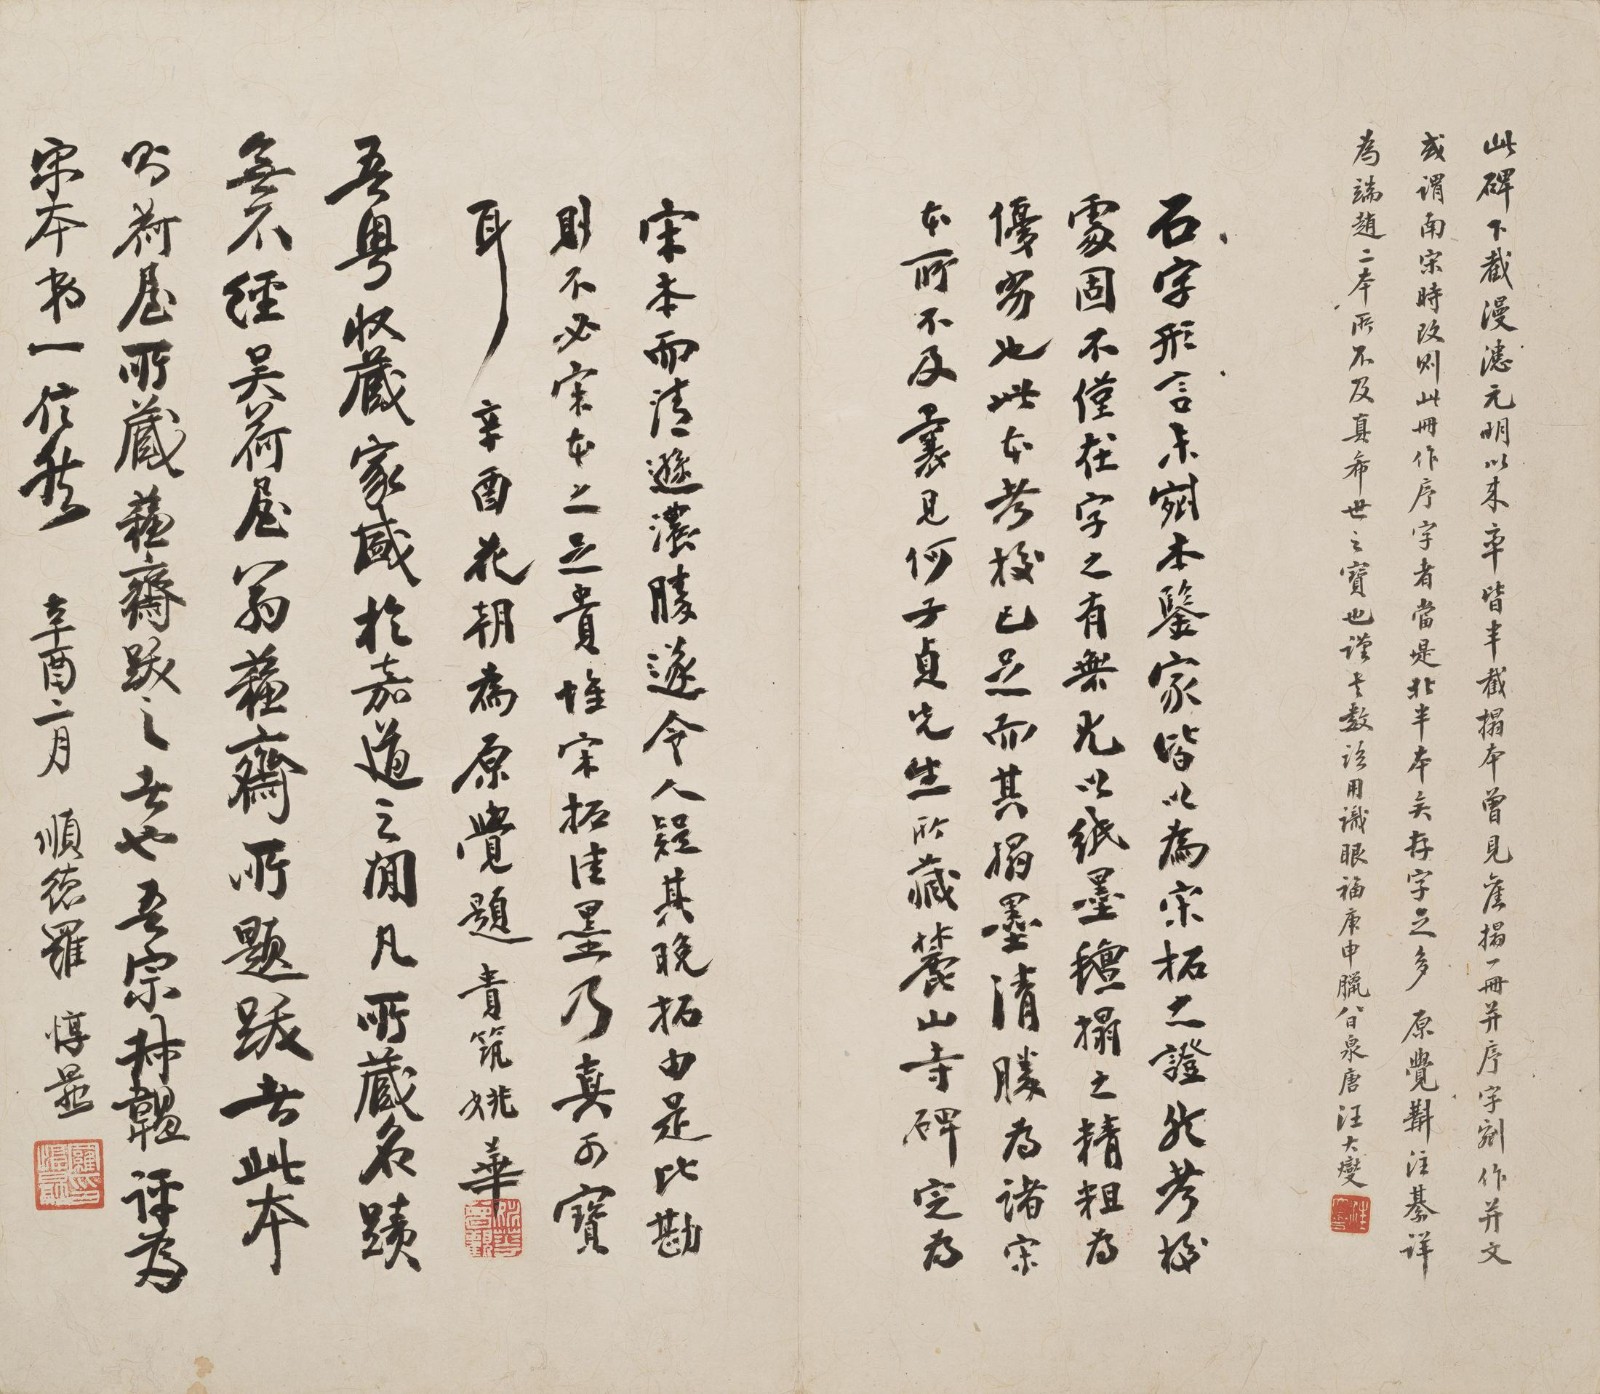 此碑下截漫漶元明以来率皆半截搨本曾見舊搨一冊并序字剜作并文
或謂南宋時改則此冊作序字者當是北半本矣存字之多原覺斠注綦詳
為端趙二本所不及真希世之寶也謹書數語用識眼福庚申臘八日泉唐汪大燮
石字形言未剜本鑒家皆以為宋拓之證然考校
處固不僅在字之有無尤以紙墨氈搨之精粗為
優劣也此本考校已足而其搨墨清勝為諸宋
本所不及曩見何子貞先生所藏麓山寺碑定為
宋本而清遜濃勝遂令人疑其晚拓由是比勘
則不必宋本之足貴惟宋拓佳墨乃真可寶
耳 辛酉花朝為原覺題 貴筑姚華
吾粤收藏家盛於嘉道之間凡所藏名蹟
無不經吳荷屋翁蘇齋所題跋者此本
則荷屋所藏蘇齋跋之者也吾宗叔韞評為
宋本書一信然 辛酉二月 順德羅惇曧